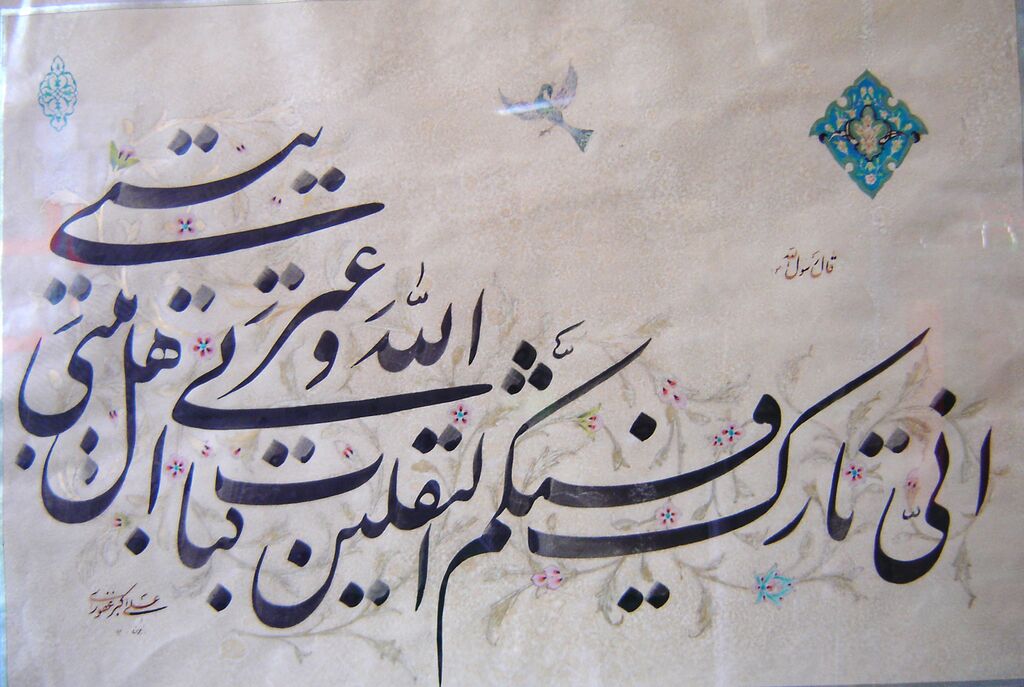 قال رسول الله
انی تارک فیکم الثقلین کتاب الله و عترتی اهل بیتی
علی اکبر غفوری